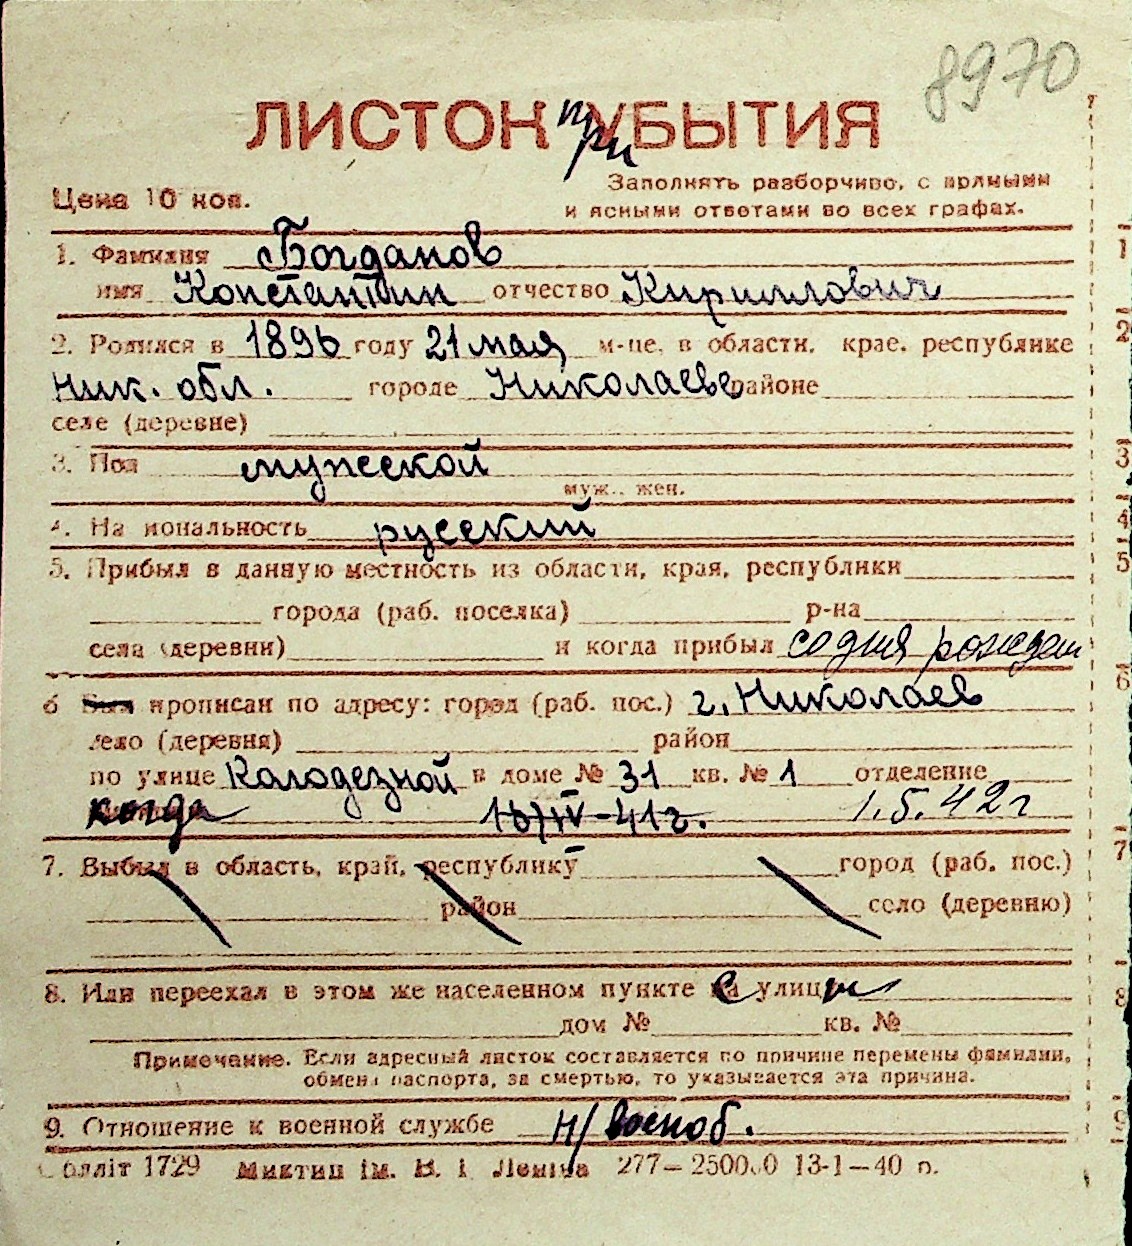 8970
ЛИСТОК при УБЫТИЯ
Цена 10 коп.
Заполнять разборчиво, с прямыми
и ясными ответами во всех графах.
1. Фамилия Богданов
имя Константин отчество Кириллович
2. Родился в 1896 году 21 мая м-це, в области, крае, республике
Ник. обл. городе Николаеве районе
селе (деревне)
3. Пол мужской
муж., жен.
4. Национальность русский
5. Прибыл в данную местность из области, края, республики
города (раб. поселка) р-на
села (деревни) и когда прибыл со дня рожден
6 Был прописан по адресу: город (раб. пос.) г. Николаев
село (деревня) район
по улице Колодезной в доме № 31 кв. № 1 отделение
когда 18/IV-41г. 1.5.42 г
7. Выбыл в область, край, республику город (раб. пос.)
район село (деревню)
8. Или переехал в этом же населенном пункте с улицы
дом № кв. №
Примечание. Если адресный листок составляется по причине перемены фамилии,
обмена паспорта, за смертью, то указывается эта причина.
9. Отношение к военной службе н/военоб.
Облліт 1729 ім. В. І. Леніна 277—25000 13-1—40 р.